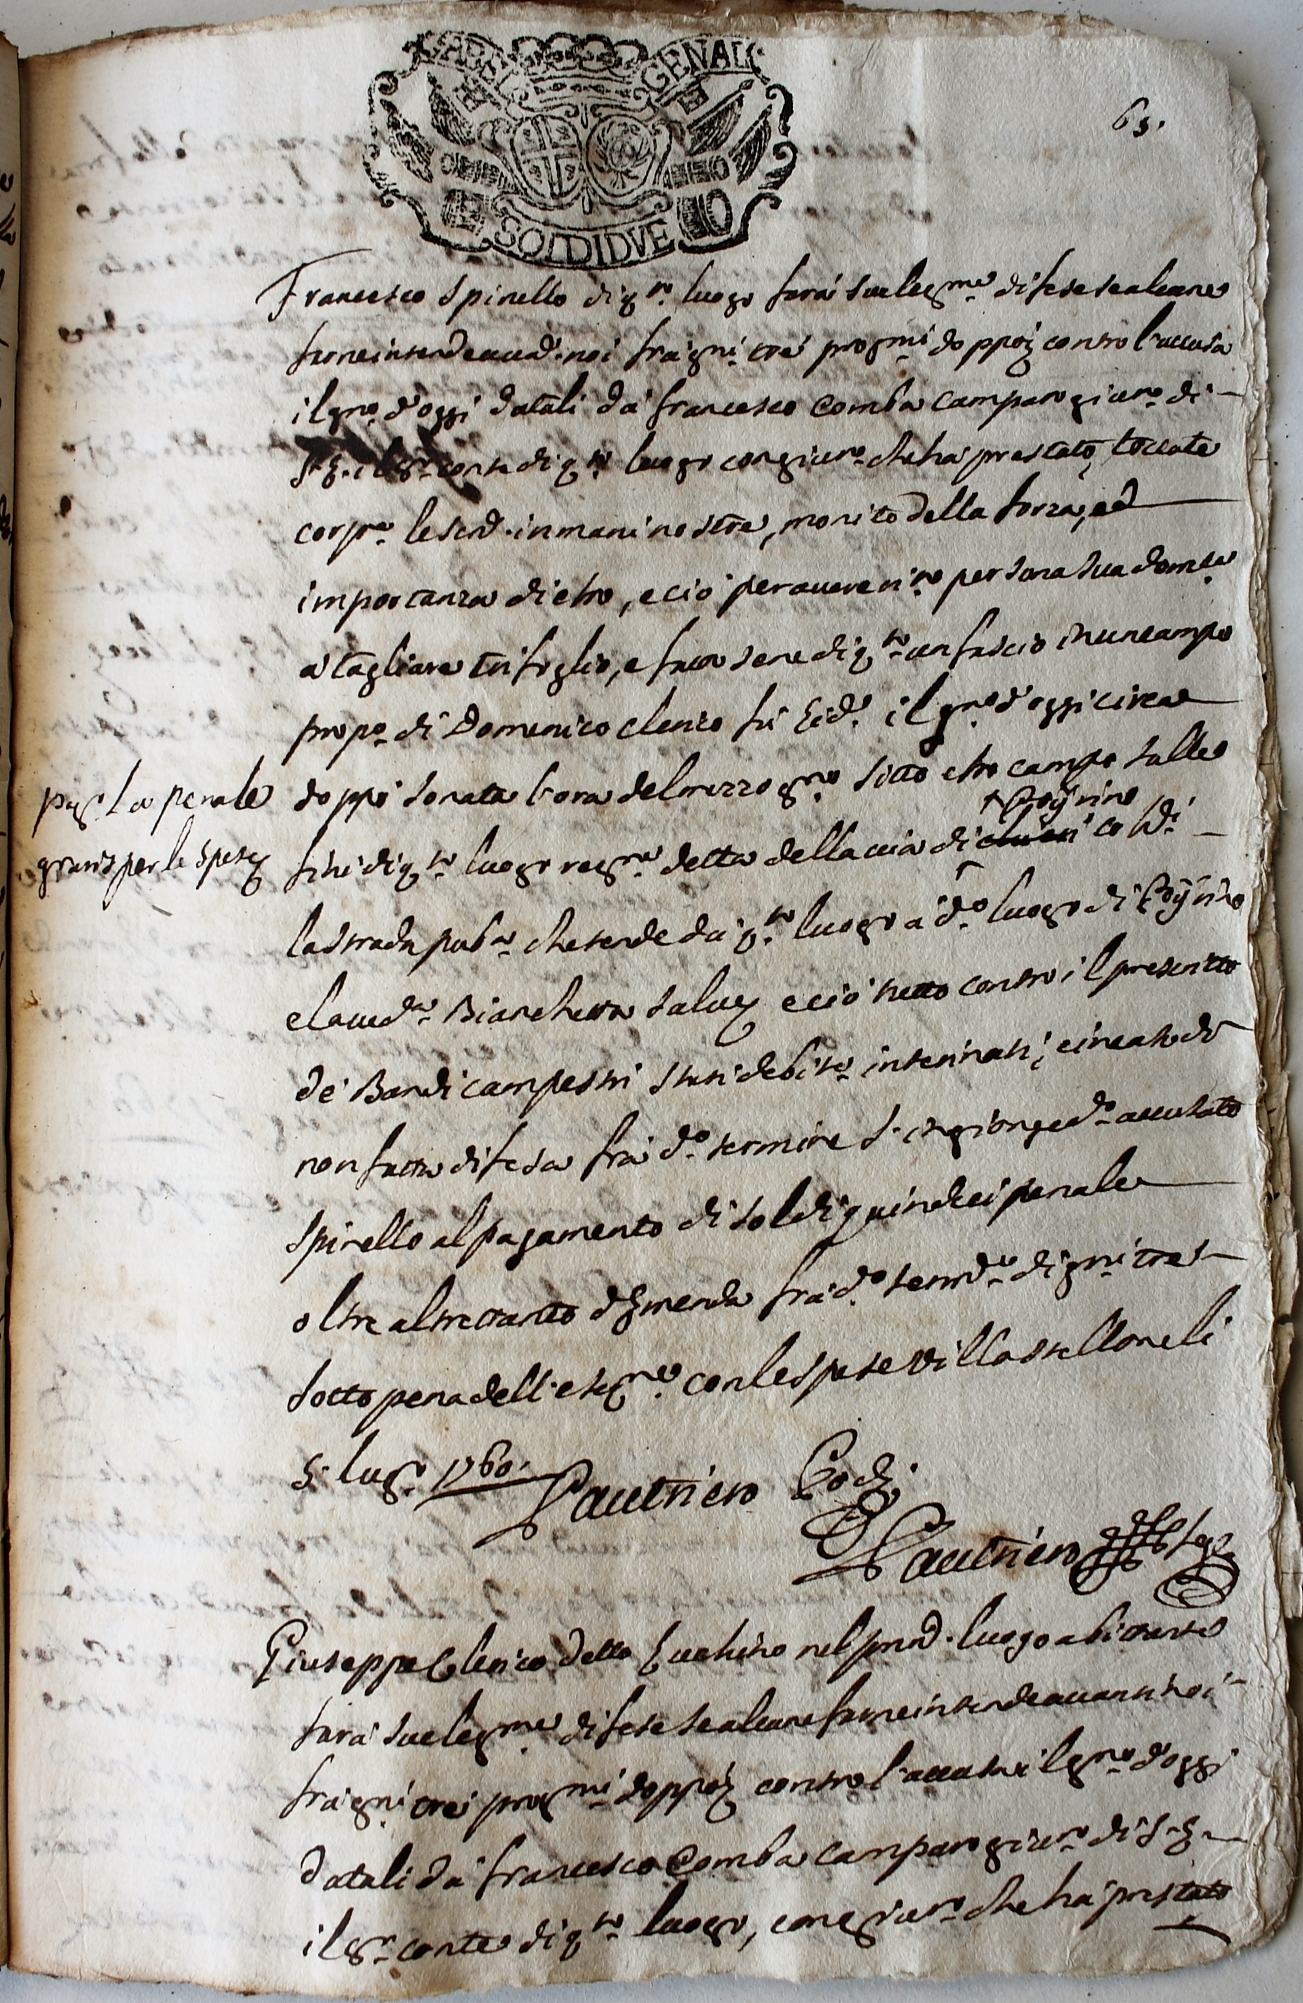 GABEL GENALE
SOLDI DVE
63.
Francesco Spinello di q.to luogo farà sue leg.me difese se alcune
farne intende avad. noi fra gni tre prosmi doppo contro l'accusa
il gno d'oggi datali da Francesco Comba camparo giur.o di
S. E. il Sr. conte di q.to luogo con giur.o che ha prestato, toccate
corp.e le scrd. in mani nostre, monito della forza, ed
importanza di esso, e ciò per avere per sona sua dom.ca
a tagliare trifoglio, e fattosene di q.to un fascio in un campo
prop.o di Domenico Clerico fu il gno d'oggi circa
doppo sonata l'ora del mezzo gno sitto campo sulle
fini di q.to luogo reg.ne detta della via di Poijrino coh.di
la strada pub.a che tende da q.to luogo a d.o luogo di Poijrino
e la ved.a Bianchetta e ciò tutto contro il prescritto
de Bandi campestri stati debit.e interinati,
non fatta difesa fra d.o termine S. ingionge d.o accusato
Spinello al pagamento di soldi quindeci penale
oltre altrettanto d'Emenda fra d.o di gni tre
sotto pena dell'esec.ne con le spese Villastellone li
5. lug.o 1760.
Gautriero Pod.
Gautriero Seg.
pag. la penale
gratis per le spese
Giuseppe Clerico detto nel pred. luogo abitante
farà sue leg.me difese se alcune farne intende avanti noi
fra gni tre prosmi doppo contro l'accusa il gno d'oggi
datali da Francesco Comba camparo giur.o di S. E.
il Sr. conte di q.to luogo, con giur.o che ha prestato